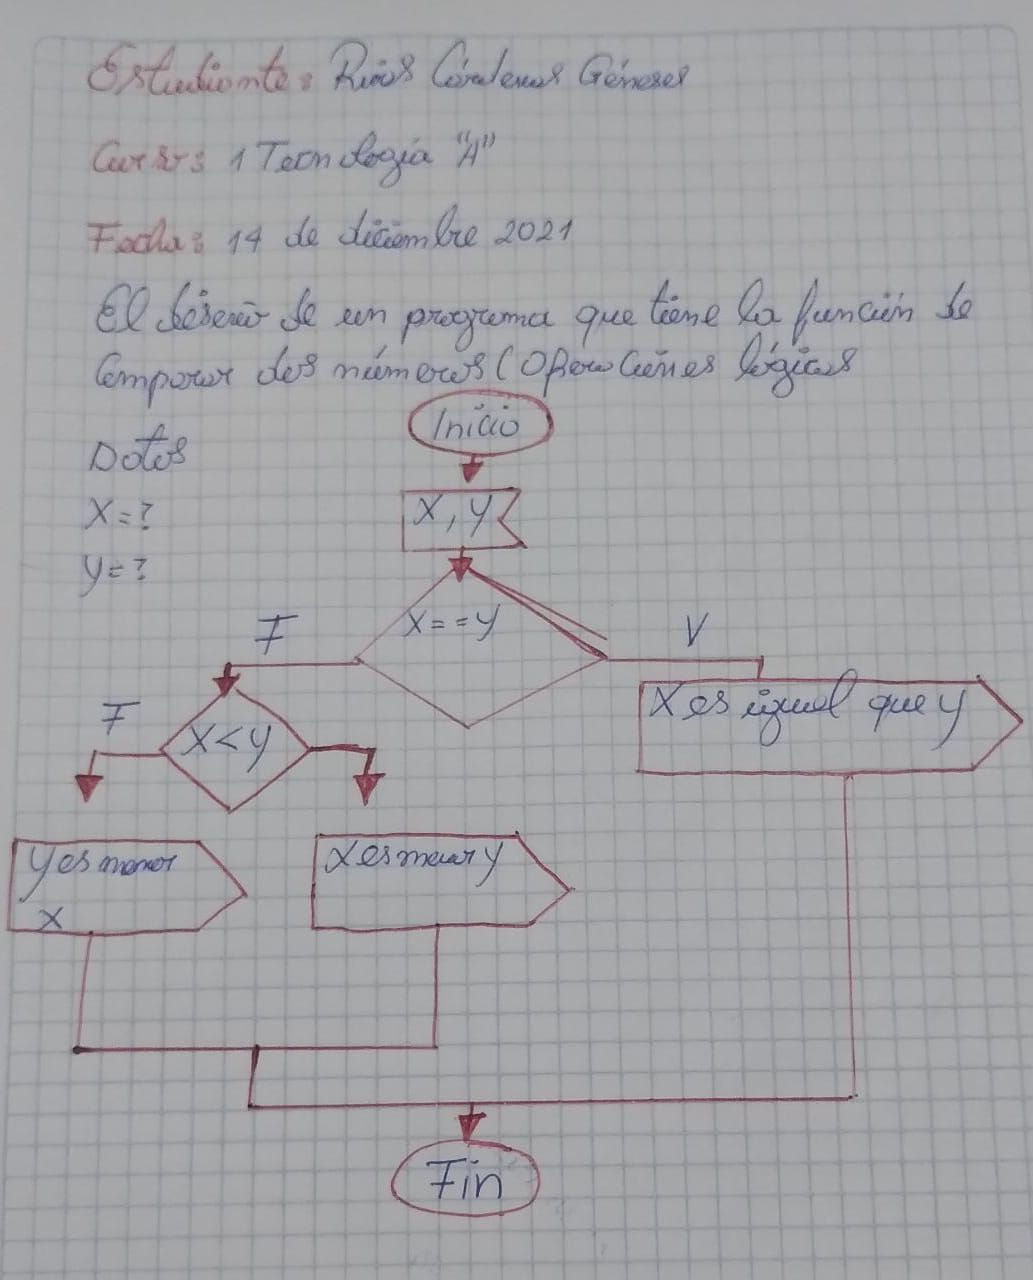 Estudiante: Ríos Cárdenas Génesis
Curso: 1 Tecnología "A"
Fecha: 14 de diciembre 2021
El diseño de un programa que tiene la función de
Comparar dos números (Operaciones lógicas
Inicio
Datos
X=?
Y=?
X, Y
X==Y
F
V
F
X<Y
X es igual que y
Y es menor
X
X es menor y
Fin